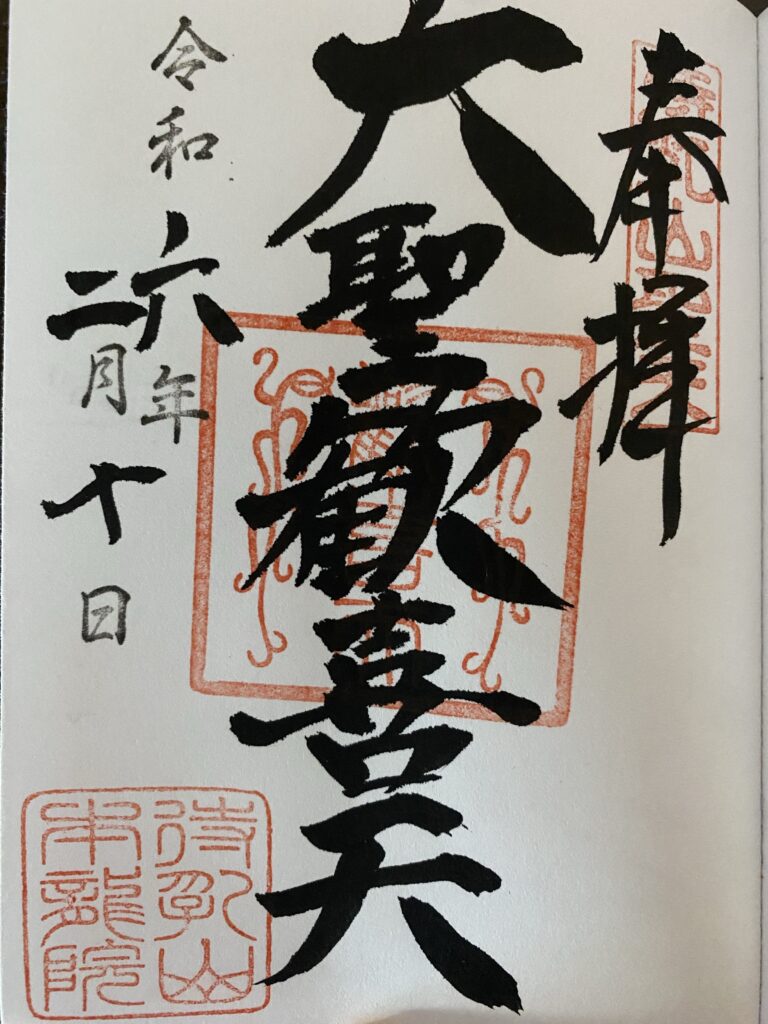 奉拝
大聖歓喜天
令和六年
二月十日
待乳山
本龍院